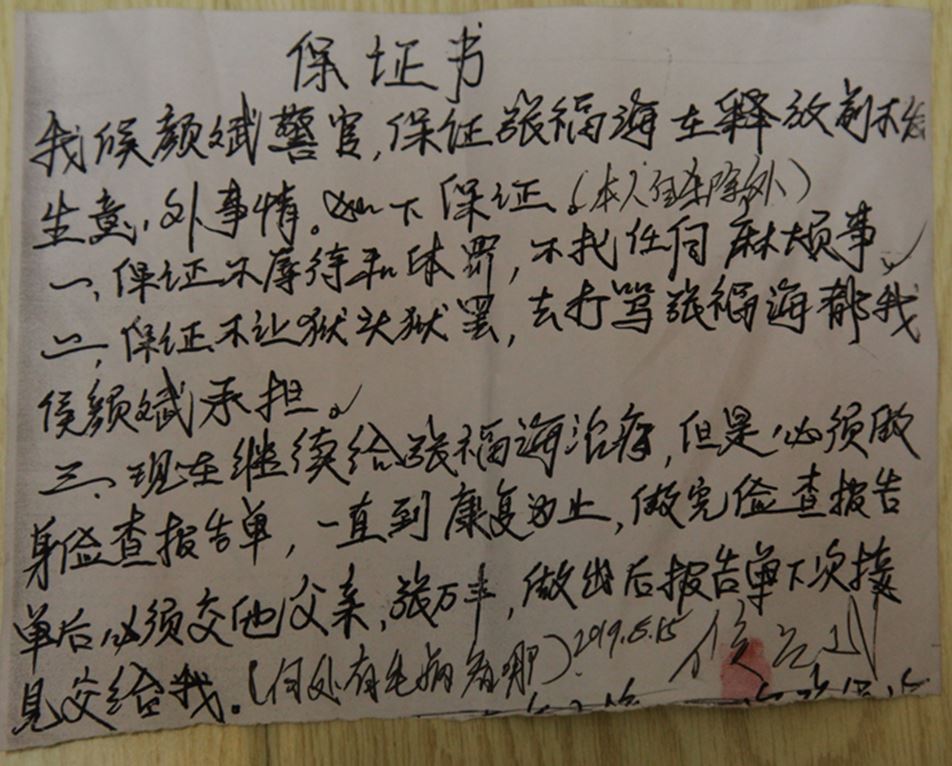 保证书
我侯颜斌警官,保证张福海在释放前不发
生意外事情。如下保证。(本人自杀除外)
一、保证不辱待和体罚,不找任何麻烦事。
二、保证不让狱头狱罢,去打骂张福海都我
侯颜斌承担。
三、现在继续给张福海治疗,但是必须做
身俭查报告单,一直到康复为止,做完俭查报告
单后必须交他父亲,张万丰,做出后报告单下次接
见交给我。(何处有毛病看哪)2019.5.15 侯